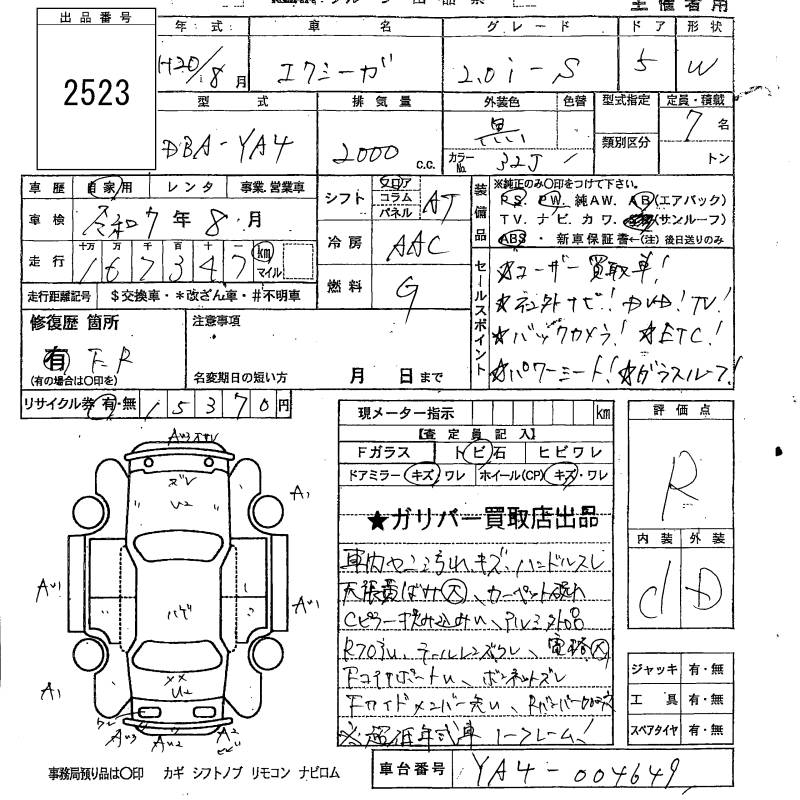 主催者用
出品番号
2523
年式 車名 グレード ドア 形状
H20/8月 エクシーガ 2.0i-S 5 W
型式 排気量 外装色 色替 型式指定 定員・積載
DBA-YA4 2000 c.c. 黒 7名
カラーNo. 32J 類別区分 トン
車歴 自家用 レンタ 事業.営業車
車検 令和7年8月
走行 十万 万 千 百 十 一 km マイル
167347
走行距離記号 $交換車・*改ざん車・#不明車
シフト フロア コラム パネル AT
冷房 AAC
燃料 G
装備品
※純正のみ○印をつけて下さい。
PS. PW. 純AW. AB(エアバック)
TV. ナビ. カワ. (サンルーフ)
ABS・新車保証書←(注)後日送りのみ
セールスポイント
★ユーザー買取車!
★社外ナビ! DVD! TV!
★バックカメラ! ★ETC!
★パワーシート! ★ガラスルーフ!
修復歴 箇所
有 F.R
(有の場合は○印を)
注意事項
名変期日の短い方 月 日まで
リサイクル券 有・無 15370円
現メーター指示 km
【査定員記入】
Fガラス トビ石 ヒビワレ
ドアミラー キズ・ワレ ホイール(CP) キズ・ワレ
★ガリバー買取店出品
車内ヤニ汚れ、キズ、ハンドルスレ
天張黄ばみ大、カーペット汚れ
Cピラー
テールレンズワレ、
ボンネットズレ
評価点
R
内装 外装
d D
ジャッキ 有・無
工具 有・無
スペアタイヤ 有・無
ズレ
U2
A1
ハゲ
XX
U2
A1
A2
事務局預り品は○印 カギ シフトノブ リモコン ナビロム
車台番号 YA4-004649